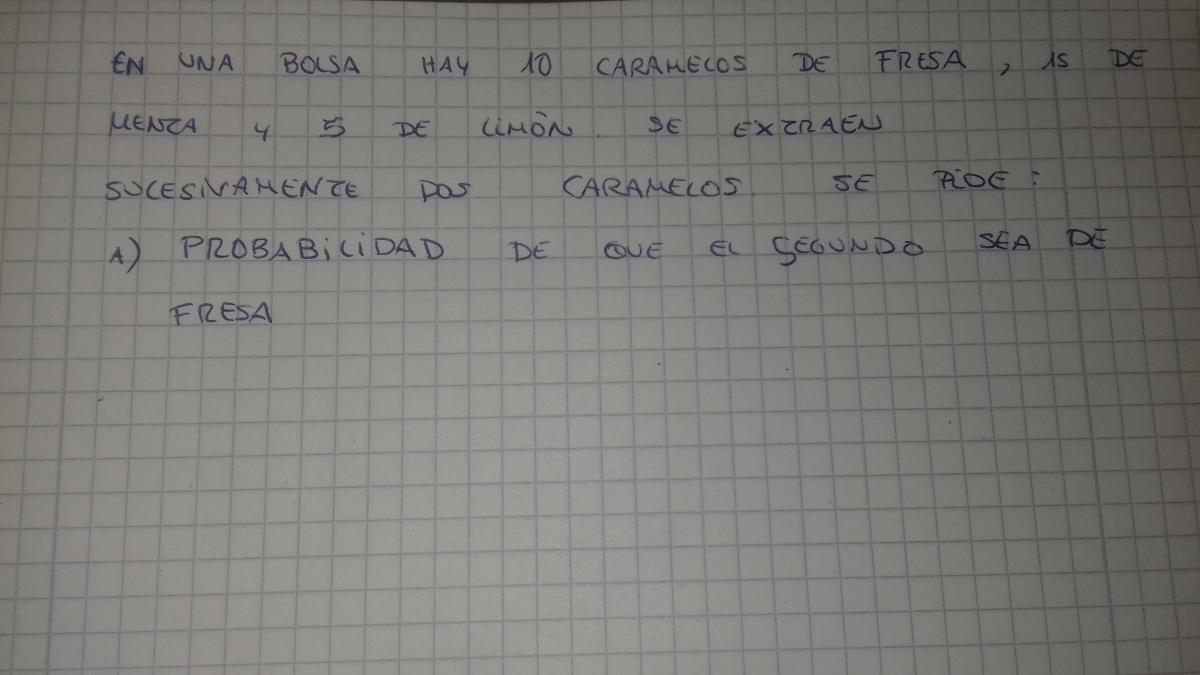 EN UNA BOLSA HAY 10 CARAMELOS DE FRESA, 15 DE
MENTA Y 5 DE LIMÓN. SE EXTRAEN
SUCESIVAMENTE DOS CARAMELOS. SE PIDE:
A) PROBABILIDAD DE QUE EL SEGUNDO SEA DE
FRESA